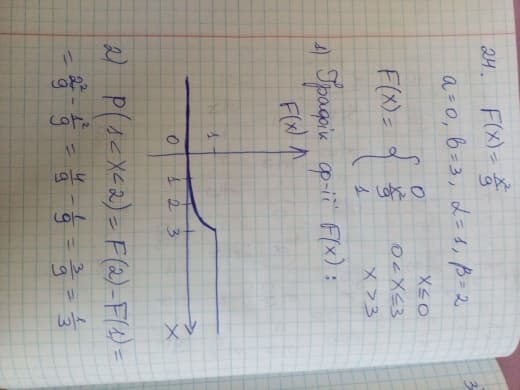 24. F(x) = x²/9
a=0, b=3, α=1, β=2
F(x) = { 0 x≤0
x²/9 0<x≤3
1 x>3
1) Графік ф-ії F(x):
F(x)
1
0 1 2 3 x
2) P(1<X<2) = F(2) - F(1) =
= 2²/9 - 1²/9 = 4/9 - 1/9 = 3/9 = 1/3